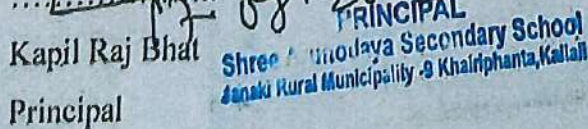 Kapil Raj Bhat
Principal
PRINCIPAL
Shree Secondary School
Janaki Rural Municipality -9 Khairiphanta, Kailali